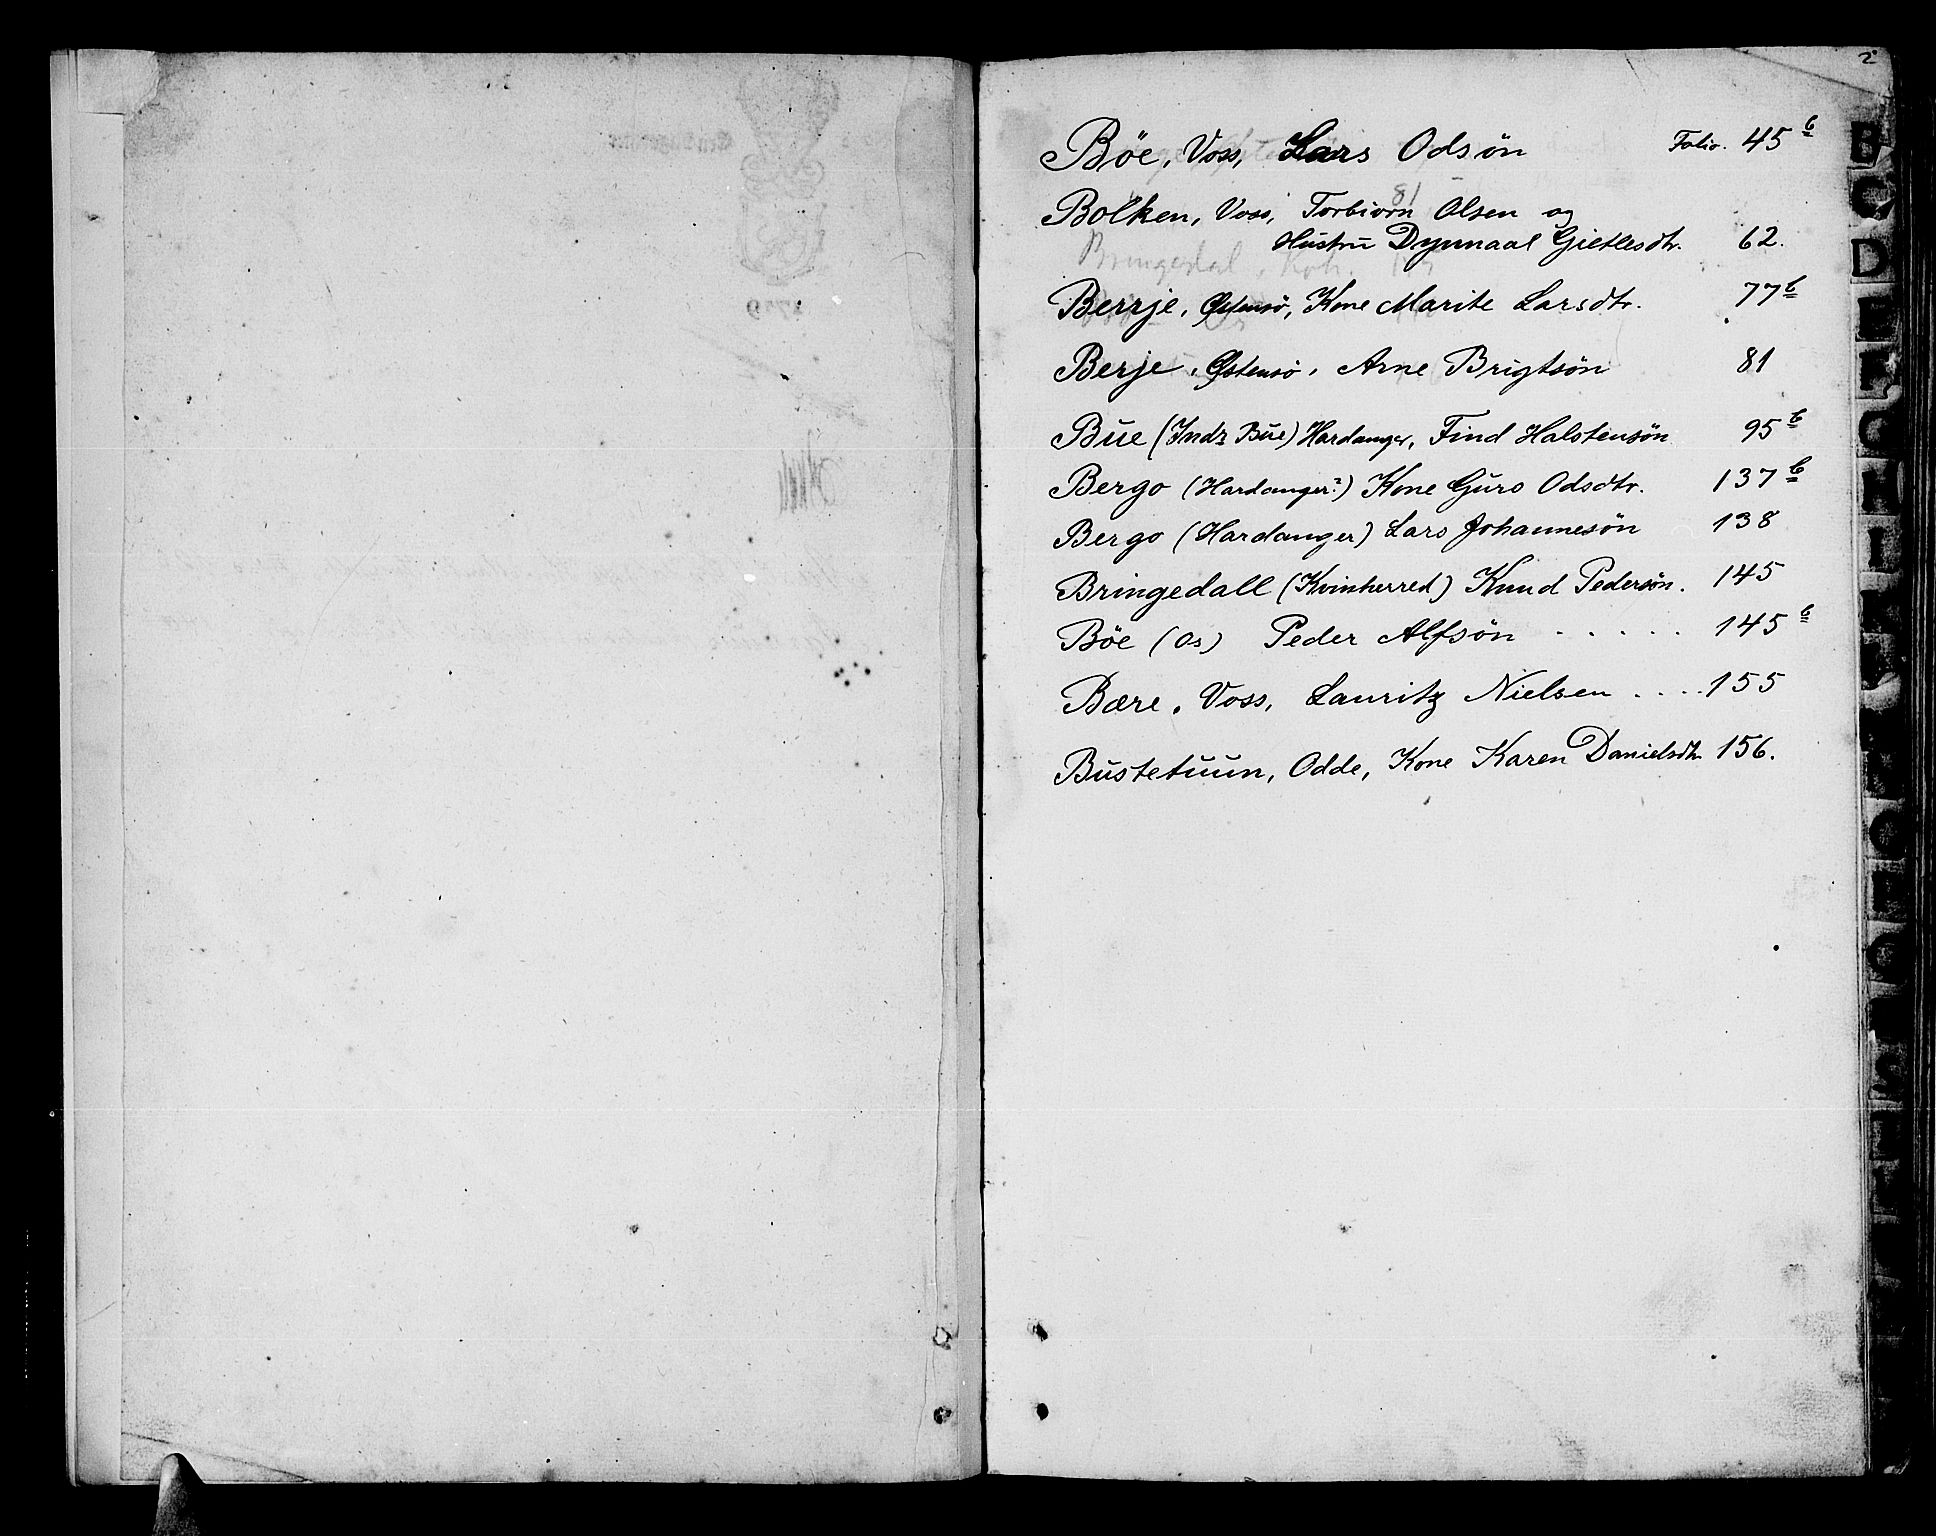 2
Böe, Voss, Lars Odsön Folio. 45 b
Bolken, Voss, Torbiorn Olsen og
Hustru Dynnaal Gietlesdtr. 62.
Berrje, Østensö, Kone Marite Larsdtr. 77 b
Berje, Østensö, Arne Brigtsön 81
Bue (Indr Bue) Hardanger, Find Halstensön 95 b
Bergo (Hardanger?) Kone Guro Odsdtr. 137 b
Bergo (Hardanger) Lars Johannesön 138
Bringedall (Kvinherred) Knud Pedersön. 145
Böe (Os) Peder Alfsön . . . . . 145 b
Bære, Voss, Lauritz Nielsen . . . . 155
Bustetuun, Odde, Kone Karen Danielsdtr 156.
81
Bringedal
B
C
D